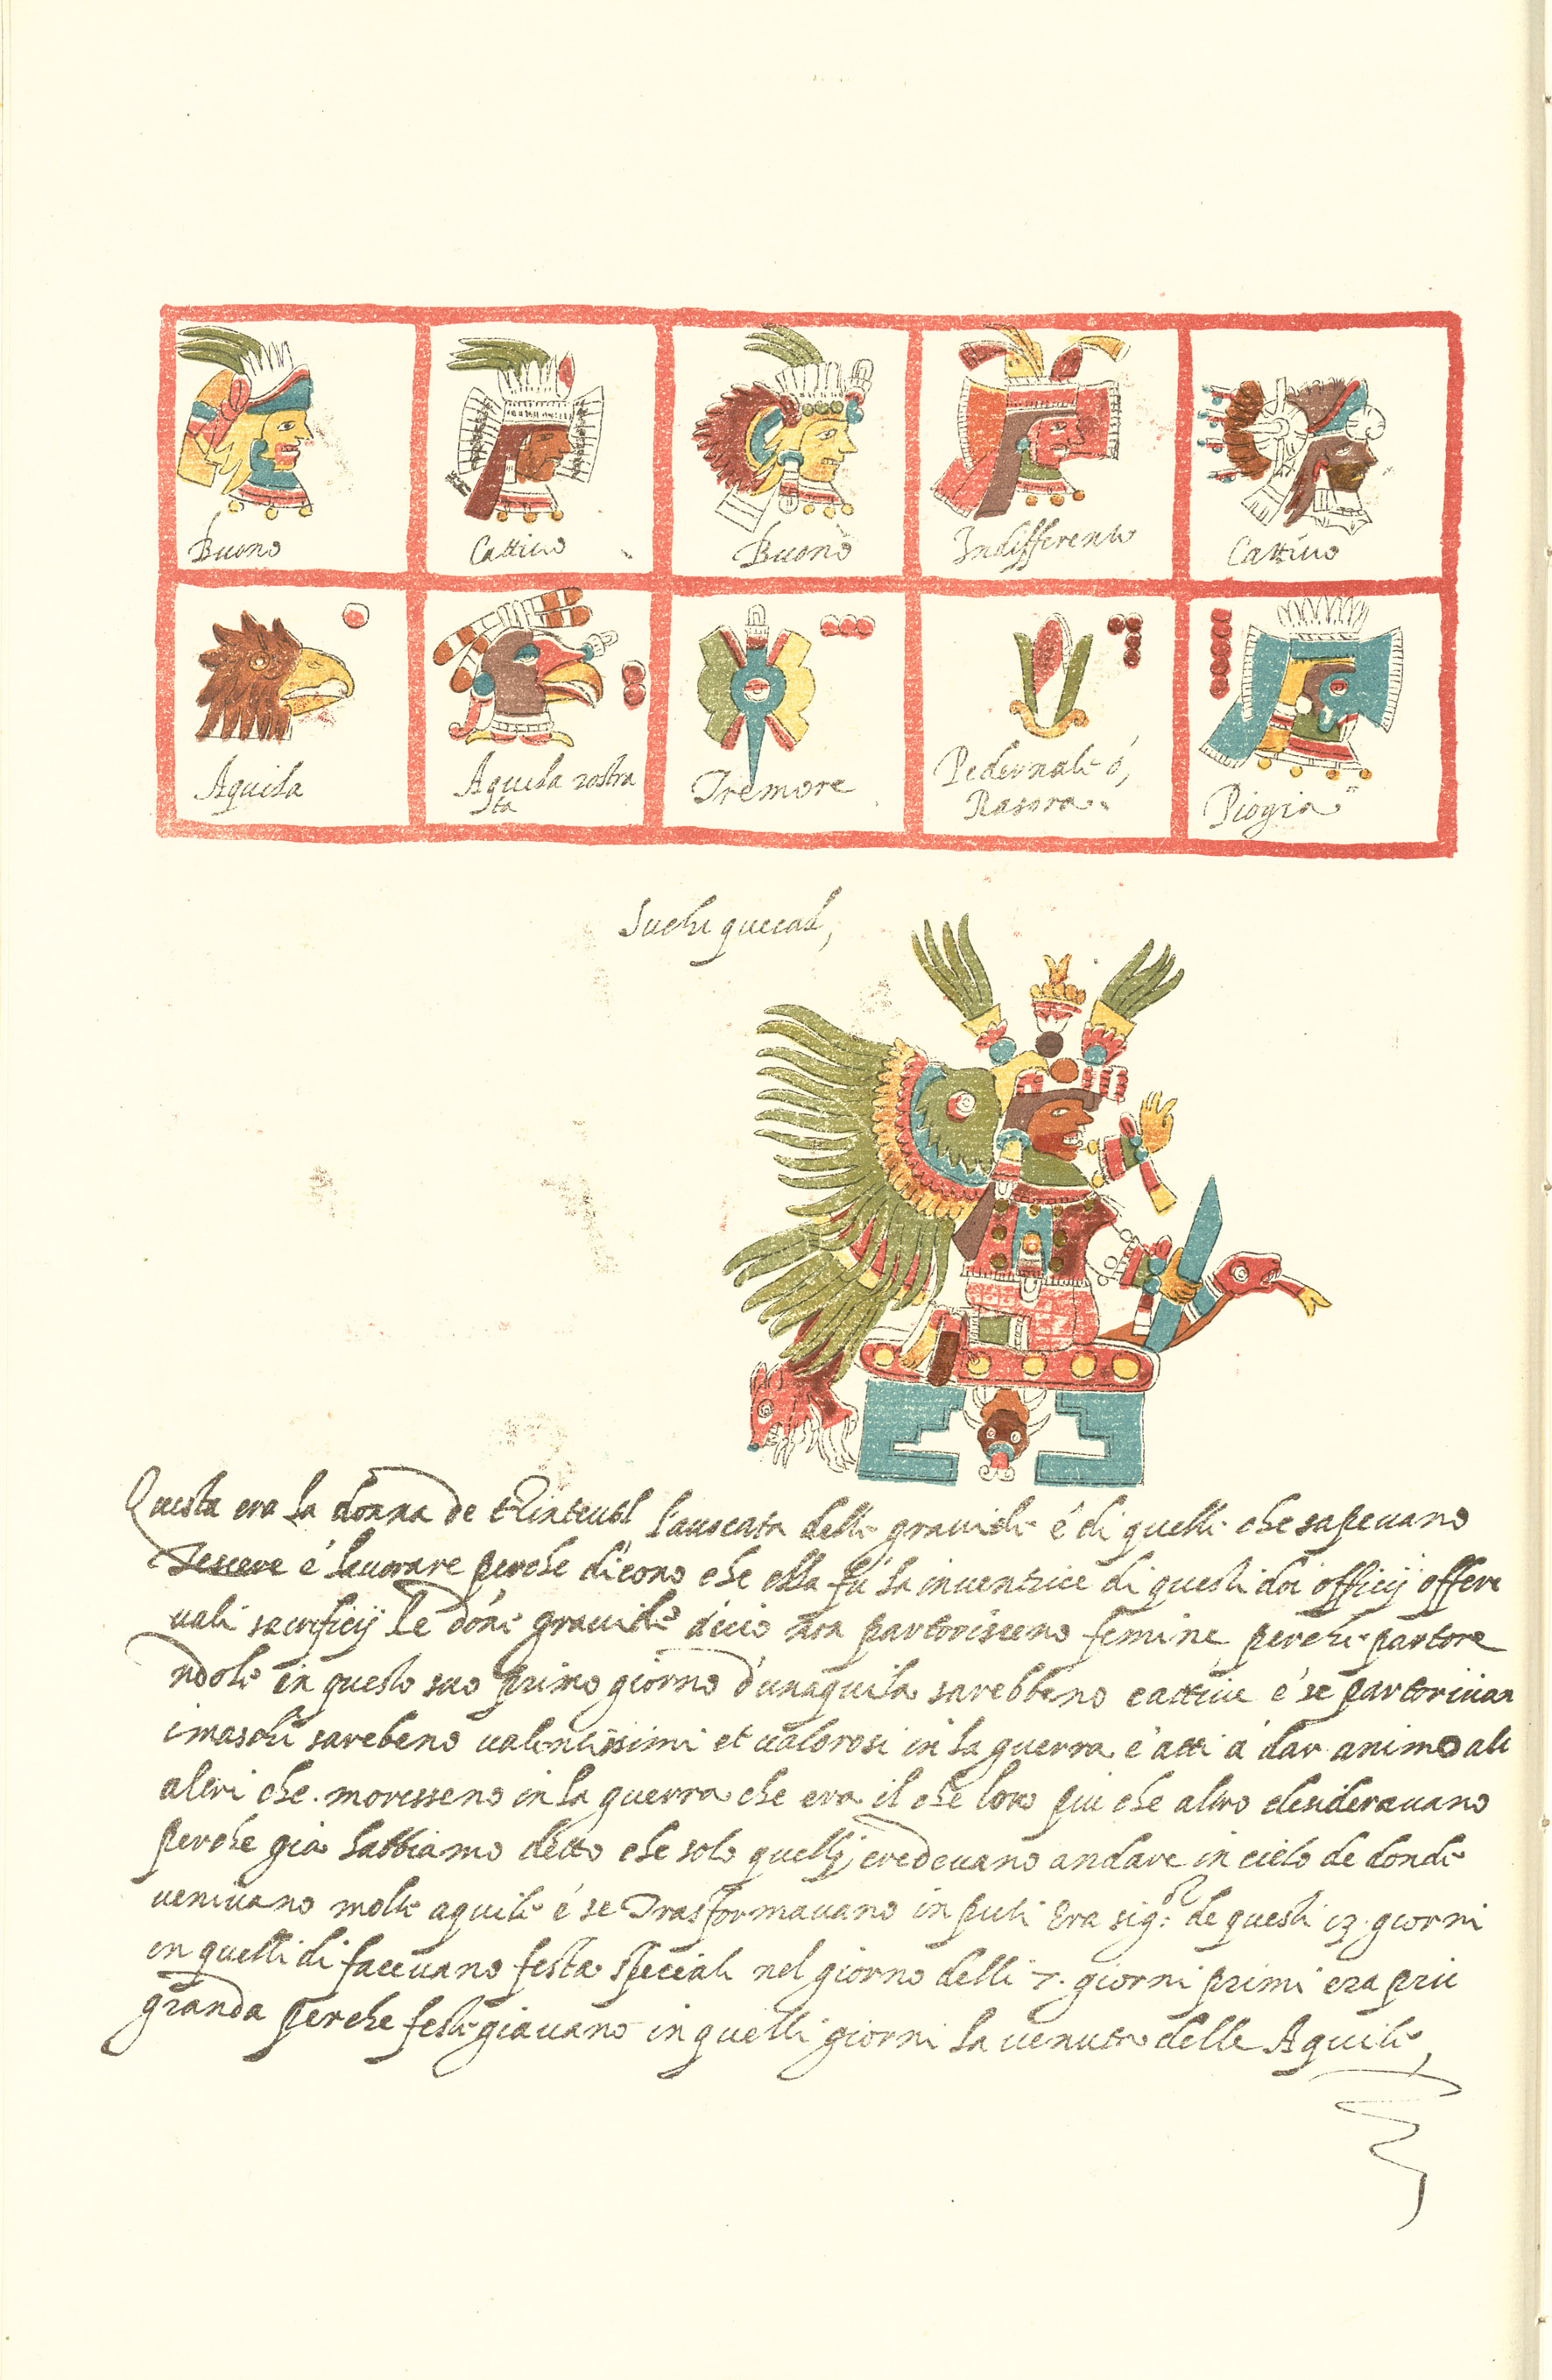 Buono
Cattiuo
Buono
Indifferente
Cattiuo
Aquila
Aquila rostra
ta
Tremore
Pedernale ó,
Rasora
Piogia
Suchi quecal,
Questa era la donna de l'auocata delle grauide é di quelle che sapeuano
Tescere é lauorare perche dicono che ella fú la inuentrice di questi doi officij offere
uali sacrificij le done grauide acció non partorisceno femine perche partore
ndole in questo suo primo giorno d'unaquila sarebbeno cattiue é se partoriuan
i maschi sarebeno ualentissimi et ualorosi in la guerra é atti á dar animo ali
altri che moresseno in la guerra che era il che loro piu che altro desiderauano
perche giá habbiamo detto che solo quelli credeuano andare in cielo de donde
ueniuano molte aquile é se Trasformauano in puti Era sig:re de questi 13. giorni
in quelli di faceuano festa speciale nel giorno delli 7. giorni primi era piu
granda perche festegiauano in quelli giorni la uenuta delle Aquile,